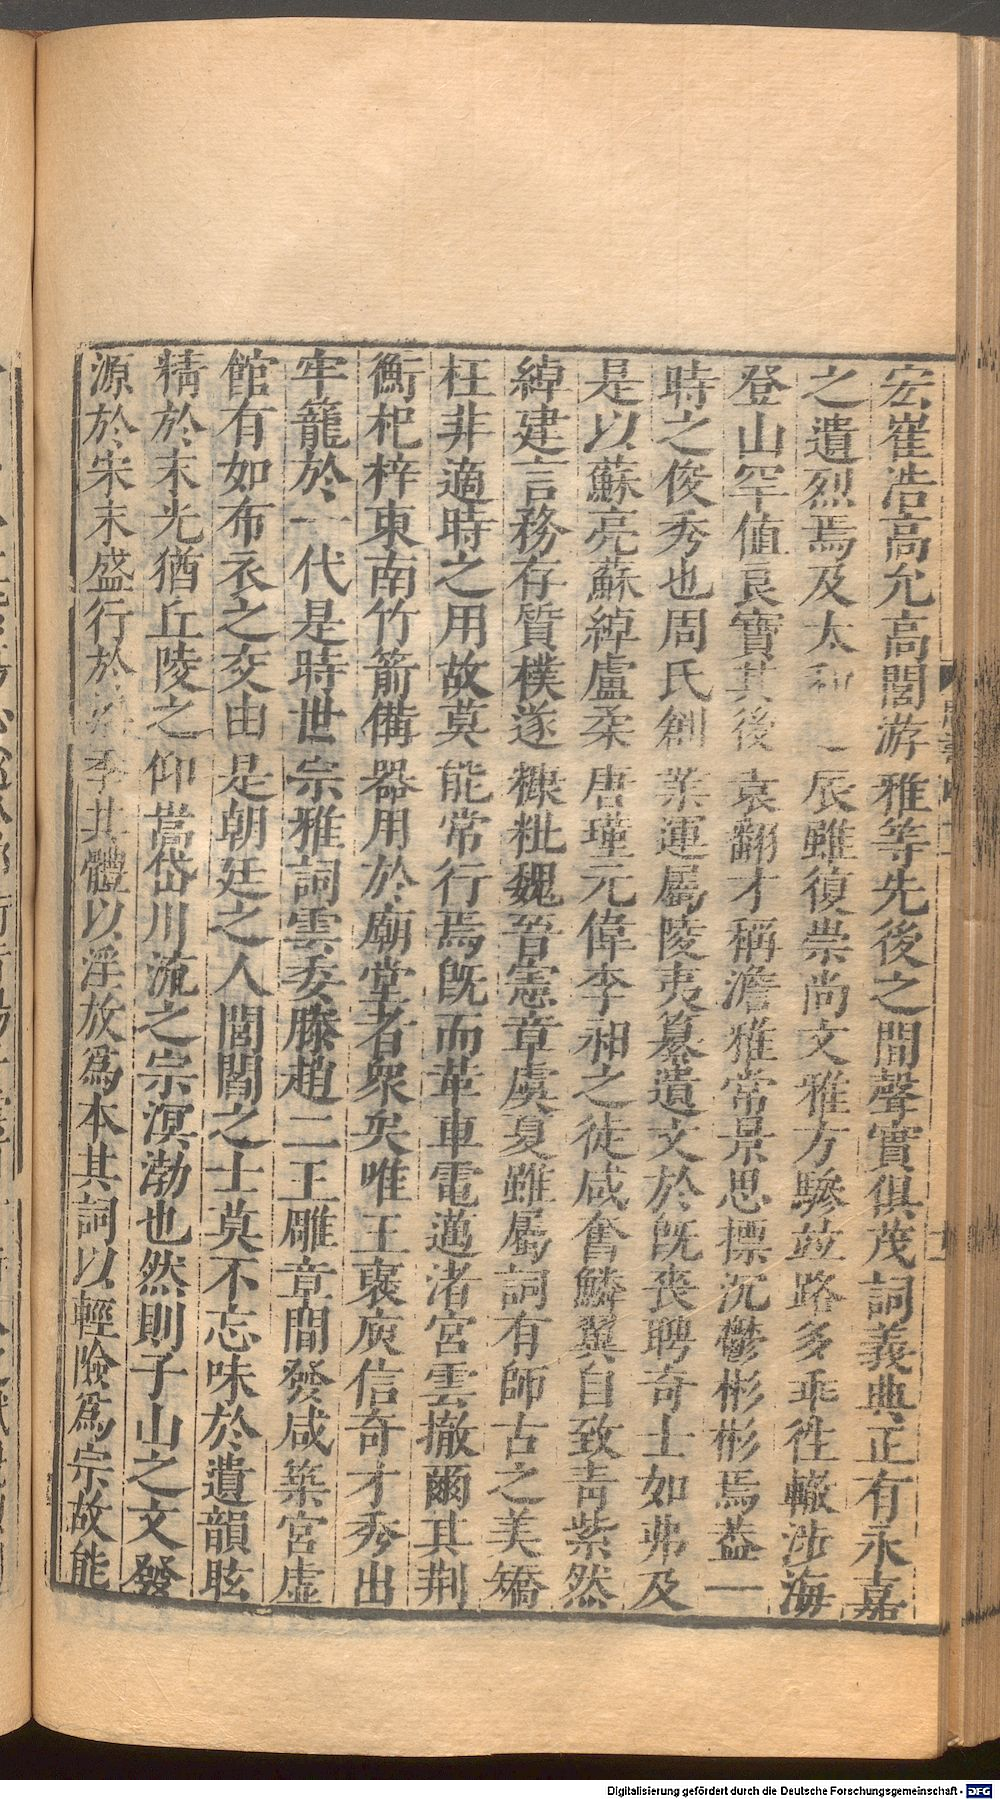 宏崔浩高允高閭游雅等先後之間聲實俱茂詞義典正有永嘉
之遺烈焉及太和辰雖復崇尚文雅方驂並路多乖往轍涉海
登山罕值良寶其後袁翻才稱澹雅常景思摽沉鬱彬彬焉蓋一
時之俊秀也周氏創業運屬陵夷纂遺文於旣喪聘奇士如弗及
是以蘇亮蘇綽盧柔唐瑾元偉李昶之徒咸奮鱗翼自致青紫然
綽建言務存質樸遂糠粃魏晉憲章虞夏雖屬詞有師古之美矯
枉非適時之用故莫能常行焉旣而革車電邁渚宮雲撤爾其荆
衡杞梓東南竹箭備器用於廟堂者衆矣唯王襃庾信奇才秀出
牢籠於一代是時世宗雅詞雲委滕趙二王雕章間發咸築宮虛
館有如布衣之交由是朝廷之人閭閻之士莫不忘味於遺韻眩
精於末光猶丘陵之仰嵩岱川流之宗溟渤也然則子山之文發
源於宋末盛行於梁季其體以淫放爲本其詞以輕險爲宗故能
Digitalisierung gefördert durch die Deutsche Forschungsgemeinschaft - DFG